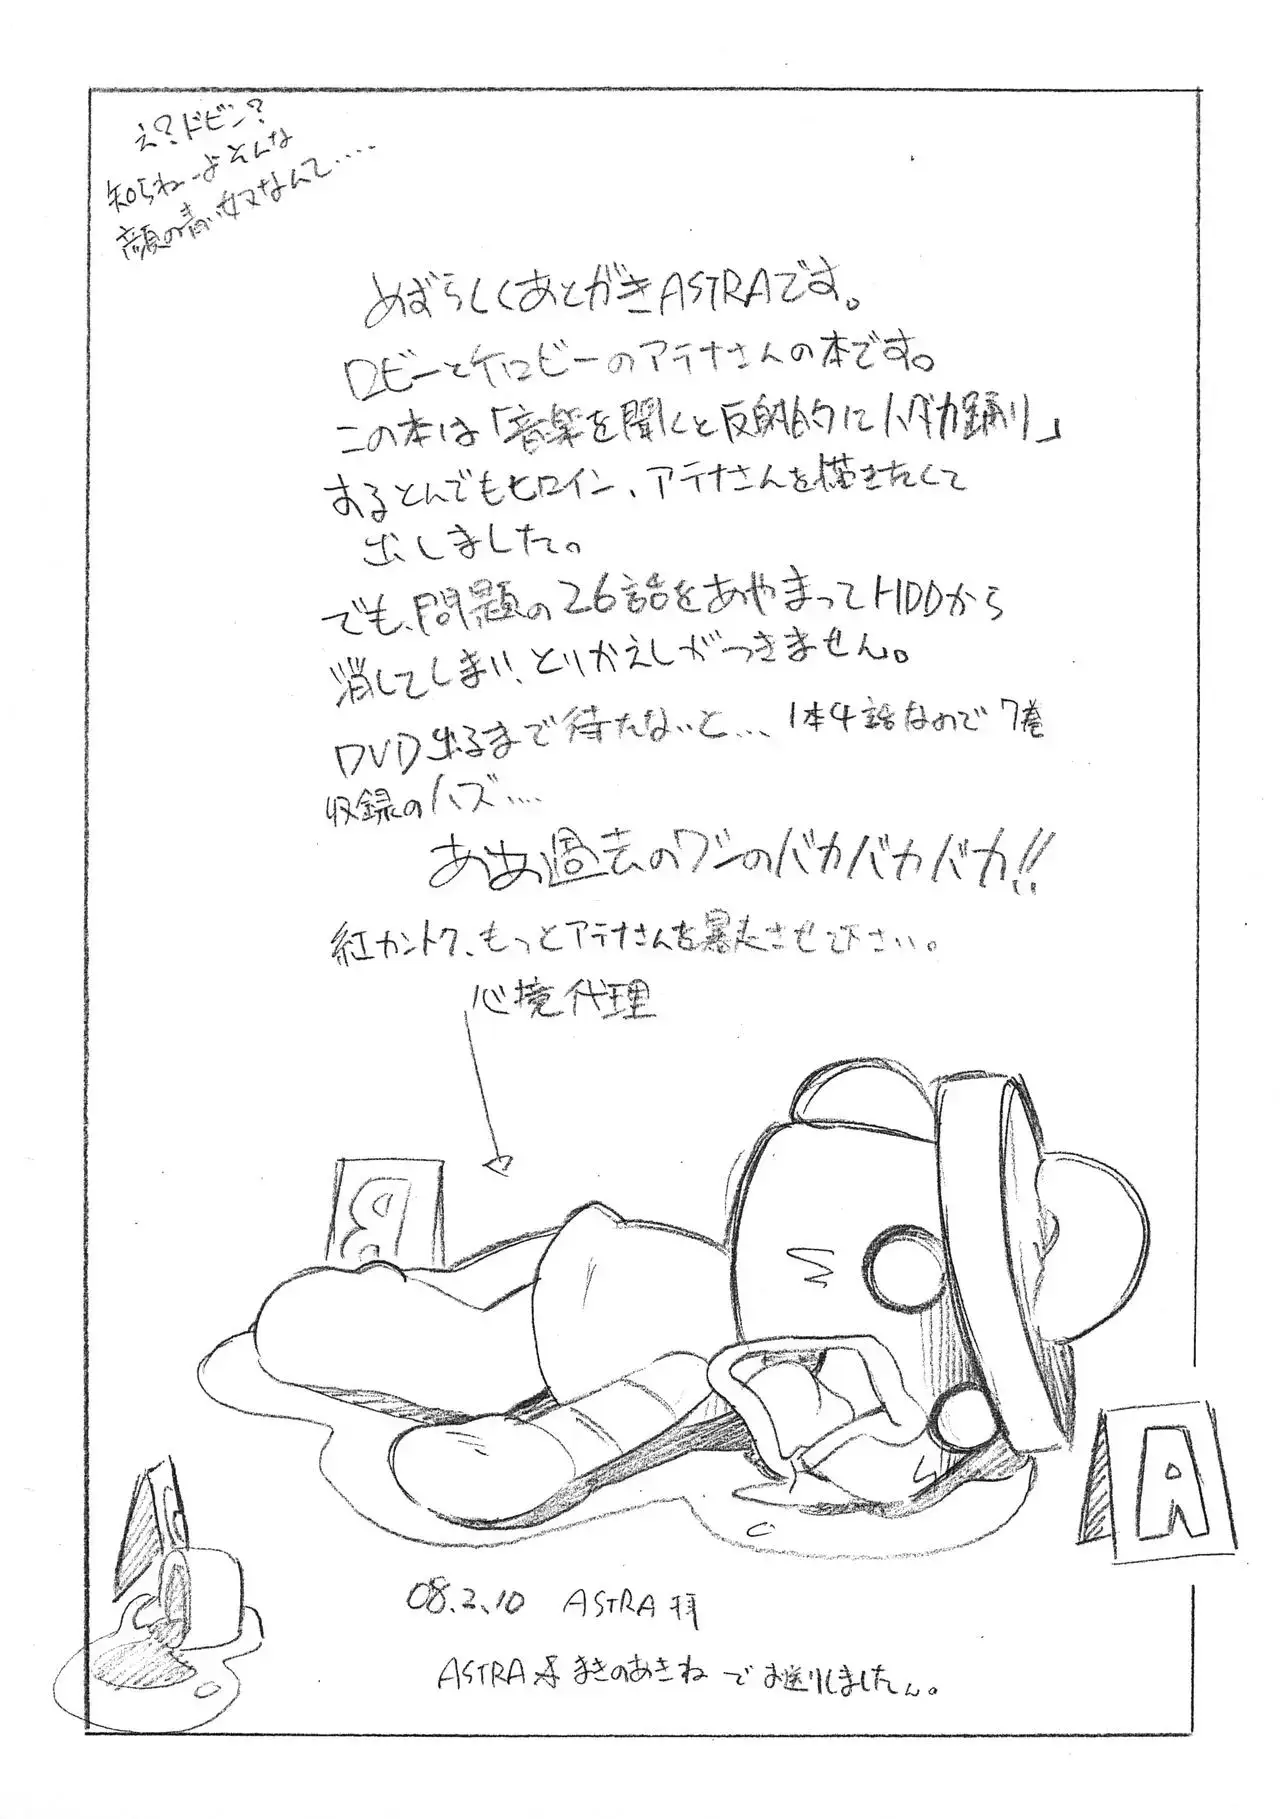 え?ドビン?
知らねーよそんな
顔の青い奴なんて....
めずらしくあとがきASTRAです。
ロビーとケロビーのアテナさんの本です。
この本は「音楽を聞くと反射的にハダカ踊り」
するとんでもヒロイン、アテナさんを描きたくて
出しました。
でも、問題の26話をあやまってHDDから
消してしまい、とりかえしがつきません。
DVD出るまで待たないと...1本4話なので7巻
収録のハズ....
ああ過去のワシのバカバカバカ!!
紅カントク、もっとアテナさんを暴走させて下さい。
心境代理
B
A
08.2.10 ASTRA拝
ASTRA まきのあきね でお送りしました。